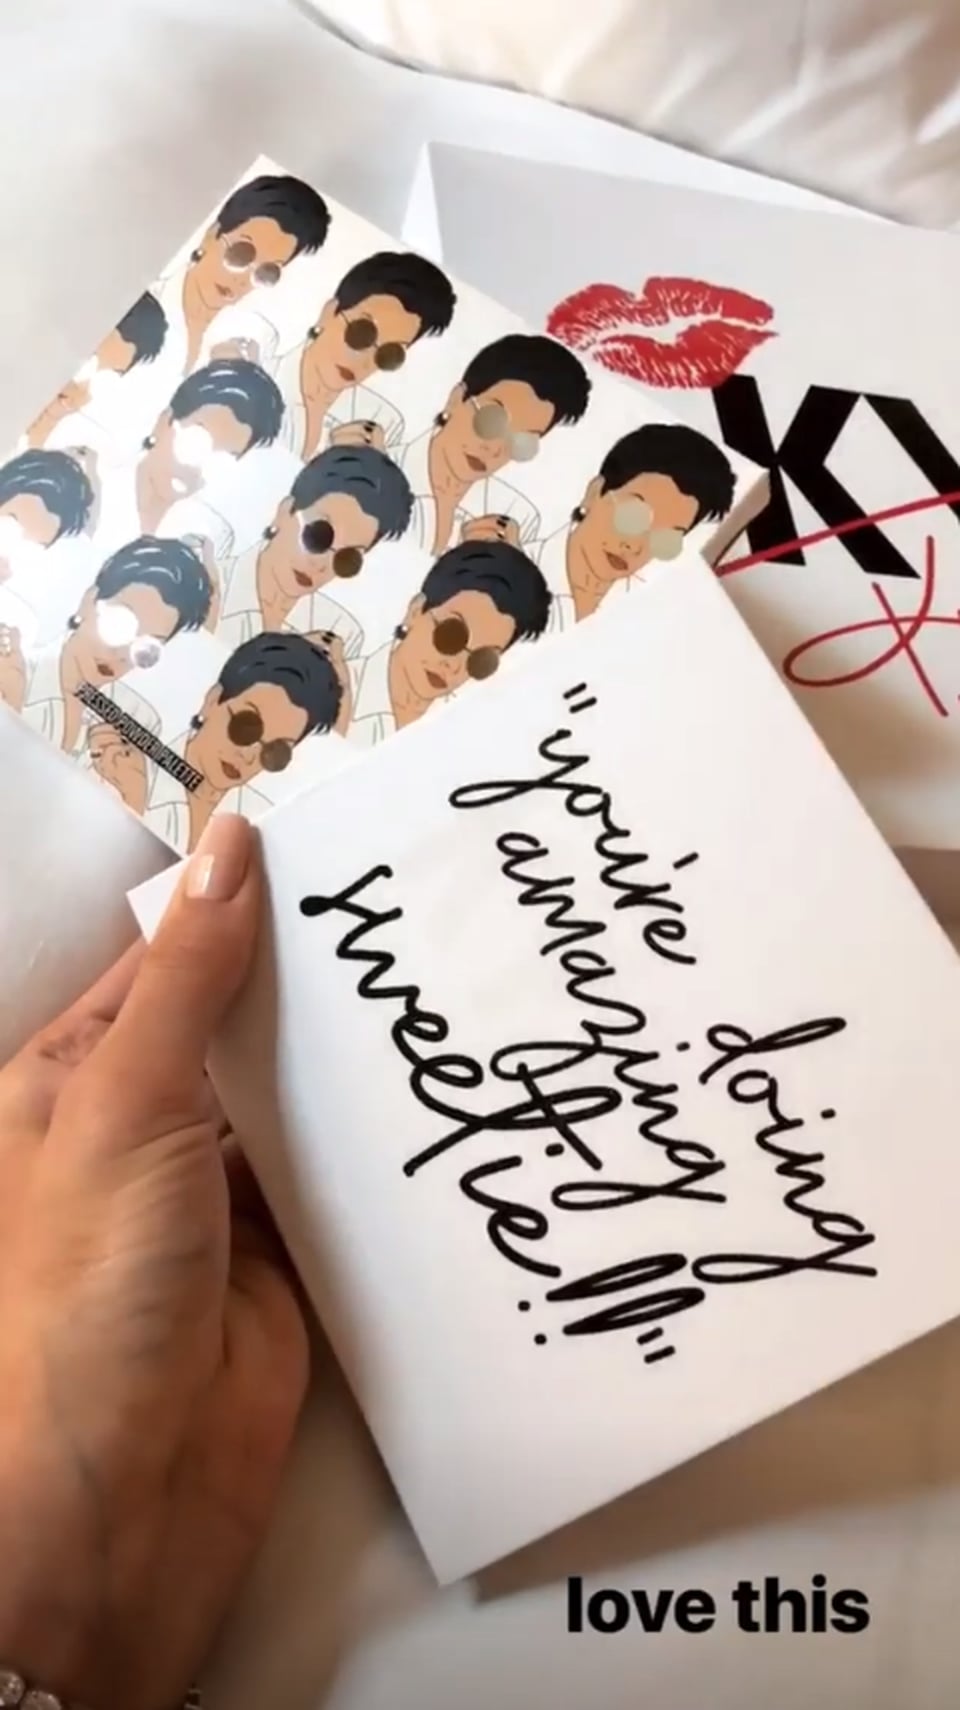 KY
PRESSED POWDER PALETTE
"you're
doing
amazing
sweetie!!!"
love this